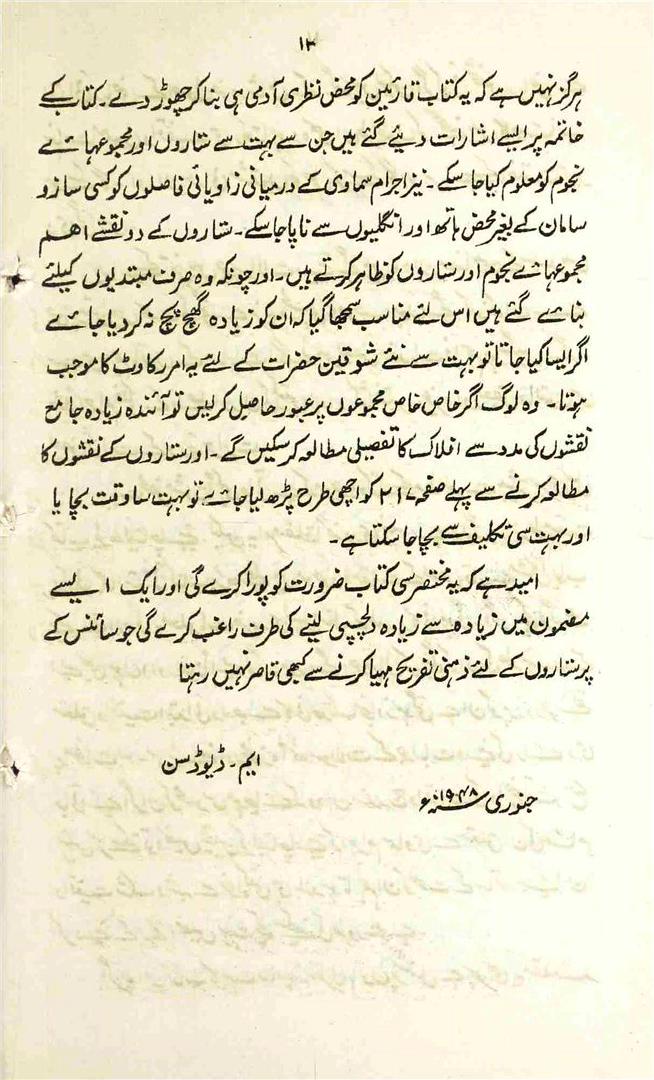 ۱۳
ہرگز نہیں ہے کہ یہ کتاب قارئین کو محض نظری آدمی ہی بنا کر چھوڑ دے ۔ کتاب کے
خاتمہ پر ایسے اشارات دیئے گئے ہیں جن سے بہت سے ستاروں اور مجموعہائے
نجوم کو معلوم کیا جا سکے ۔ نیز اجرام سماوی کے درمیانی زاویائی فاصلوں کو کسی سازو
سامان کے بغیر محض ہاتھ اور انگلیوں سے ناپا جا سکے ۔ ستاروں کے دو نقشے اہم
مجموعہائے نجوم اور ستاروں کو ظاہر کرتے ہیں ۔ اور چونکہ وہ صرف مبتدیوں کیلئے
بنائے گئے ہیں اس لئے مناسب سمجھا گیا کہ ان کو زیادہ گھچ پچ نہ کر دیا جائے
اگر ایسا کیا جاتا تو بہت سے نئے شوقین حضرات کے لئے یہ امر رکاوٹ کا موجب
ہوتا ۔ وہ لوگ اگر خاص خاص مجموعوں پر عبور حاصل کر لیں تو آئندہ زیادہ جامع
نقشوں کی مدد سے افلاک کا تفصیلی مطالعہ کر سکیں گے ۔ اور ستاروں کے نقشوں کا
مطالعہ کرنے سے پہلے صفحہ ۲۱۷ کو اچھی طرح پڑھ لیا جائے تو بہت سا وقت بچایا
اور بہت سی تکلیف سے بچا جا سکتا ہے ۔
امید ہے کہ یہ مختصر سی کتاب ضرورت کو پورا کرے گی اور ایک ایسے
مضمون میں زیادہ سے زیادہ دلچسپی لینے کی طرف راغب کرے گی جو سائنس کے
پرستاروں کے لئے ذہنی تفریح مہیا کرنے سے کبھی قاصر نہیں رہتا
ایم ۔ ڈیوڈسن
جنوری سنہ ۱۹۴۸ء